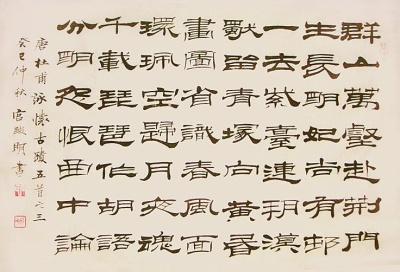 群山萬壑赴荊門
生長明妃尚有邨
一去紫臺連朔漠
獨留青塚向黃昏
畫圖省識春風面
環珮空歸月夜魂
千載琵琶作胡語
分明怨恨曲中論
唐杜甫詠懷古蹟五首之三
癸巳仲秋官書